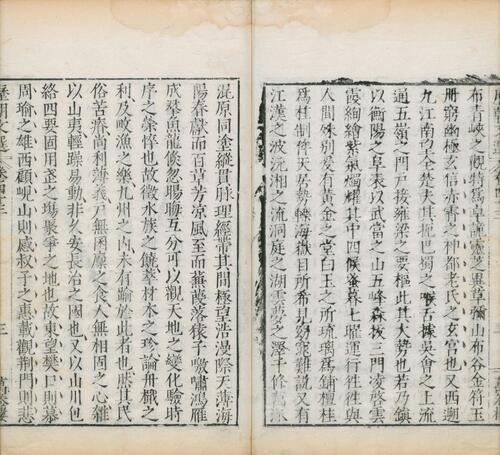 布青峽之硯特爲卓謹靈芝異草彌山布谷金符玉
冊窮幽極玄信赤霄之神都老氏之玄宮也又西遡
九江南望全楚夫其扼巴蜀之喉吾據吳會之上流
通五嶺之門戸接雍梁之要樞此其大勢也若乃鎮
以衡陽之阜表以武當之山五峰森拔三門凌啓雲
霞絢繪紫氣燭耀其中四候蚤暮七曜運行往往與
人間殊別爰有黃金之堂白玉之所琉璃爲鋪檀桂
爲柱制侔天居勢轢海嶽目所希見芻難說又有
江漢之波沅湘之流洞庭之湖雲夢之澤千條
混原同塗縱貫脉理經帶其間極望浩漫際天薄海
陽春獻而百草芳涼風至而蕪薉落猿子噭嘯鴻雁
成羣魚龍倏忽互分可以觀天地之變化驗時
序之悴也故微水族之饒摹材木之珍論舟檝之
利及畋漁之樂九州之內未有踰於此者也然其民
俗苦瘠尚利薄義戸無囷廩之食人無相固之心雜
以山夷輕躁易動非久安長治之國也又以山川包
絡四要固用武之塲聚爭之地也故東望樊口則慕
周瑜之雄西顧峴山則感叔子之惠載觀荆門則悲
三